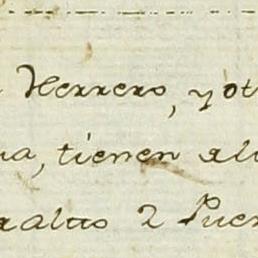 Herrero, y ot
na, tienen al
alto 2 Puer